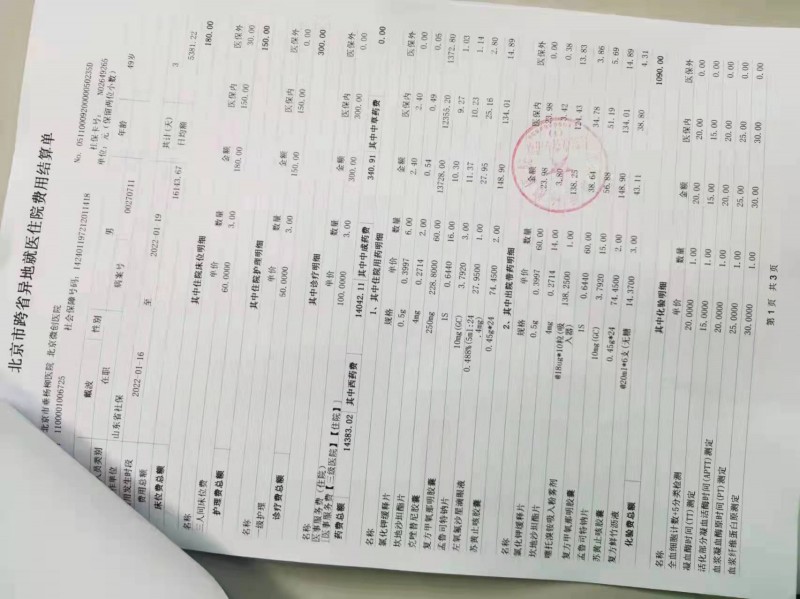 北京市跨省异地就医住院费用结算单
北京市垂杨柳医院 北京微创医院 No. 051100092000000502350
1100001006725 社会保障号码: 142401197212011418 社保卡号: N02649265
单位: 元(保留两位小数)
戴波 性别 男 年龄 49岁
人员类别 在职 病案号 00270711
山东省社保
2022-01-16 至 2022-01-19 共计(天) 3
费用总额 16143.67 日均额 5381.22
床位费总额 其中住院床位明细 180.00
单价 数量 金额 医保内 医保外
三人间床位费 60.0000 3.00 180.00 150.00 30.00
护理费总额 其中住院护理明细 150.00
单价 数量 金额 医保内 医保外
一级护理 50.0000 3.00 150.00 150.00 0.00
诊疗费总额 其中诊疗明细 300.00
名称 单价 数量 金额 医保内 医保外
医事服务费(住院)
[医事服务费【三级医院】【住院】] 100.0000 3.00 300.00 300.00 0.00
药费总额 14383.02 其中西药费 14042.11 其中中成药费 340.91 其中中草药费 0.00
1、其中住院用药明细
名称 规格 单价 数量 金额 医保内 医保外
氯化钾缓释片 0.5g 0.3997 6.00 2.40 2.40 0.00
坎地沙坦酯片 4mg 0.2714 2.00 0.54 0.49 0.05
克唑替尼胶囊 250mg 228.8000 60.00 13728.00 12355.20 1372.80
复方甲氧那明胶囊 1S 0.6440 16.00 10.30 9.27 1.03
孟鲁司特钠片 10mg(GC) 3.7920 3.00 11.37 10.23 1.14
左氧氟沙星滴眼液 0.488%(5ml:24.4mg) 27.9500 1.00 27.95 25.16 2.80
苏黄止咳胶囊 0.45g*24 74.4500 2.00 148.90 134.01 14.89
2、其中出院带药明细
名称 规格 单价 数量 金额 医保内 医保外
氯化钾缓释片 0.5g 0.3997 60.00 23.98 23.98 0.00
坎地沙坦酯片 4mg 0.2714 14.00 3.80 3.42 0.38
噻托溴铵吸入粉雾剂 #18ug*10粒(吸入器) 138.2500 1.00 138.25 124.43 13.83
复方甲氧那明胶囊 1S 0.6440 60.00 38.64 34.78 3.86
孟鲁司特钠片 10mg(GC) 3.7920 15.00 56.88 51.19 5.69
苏黄止咳胶囊 0.45g*24 74.4500 2.00 148.90 134.01 14.89
复方鲜竹沥液 #20ml*6支(无糖 14.3700 3.00 43.11 38.80 4.31
化验费总额 其中化验明细 1090.00
名称 单价 数量 金额 医保内 医保外
全血细胞计数+5分类检测 20.0000 1.00 20.00 20.00 0.00
凝血酶时间(TT)测定 15.0000 1.00 15.00 15.00 0.00
活化部分凝血活酶时间(APTT)测定 20.0000 1.00 20.00 20.00 0.00
血浆凝血酶原时间(PT)测定 25.0000 1.00 25.00 25.00 0.00
血浆纤维蛋白原测定 30.0000 1.00 30.00 30.00 0.00
第 1 页 共 3 页